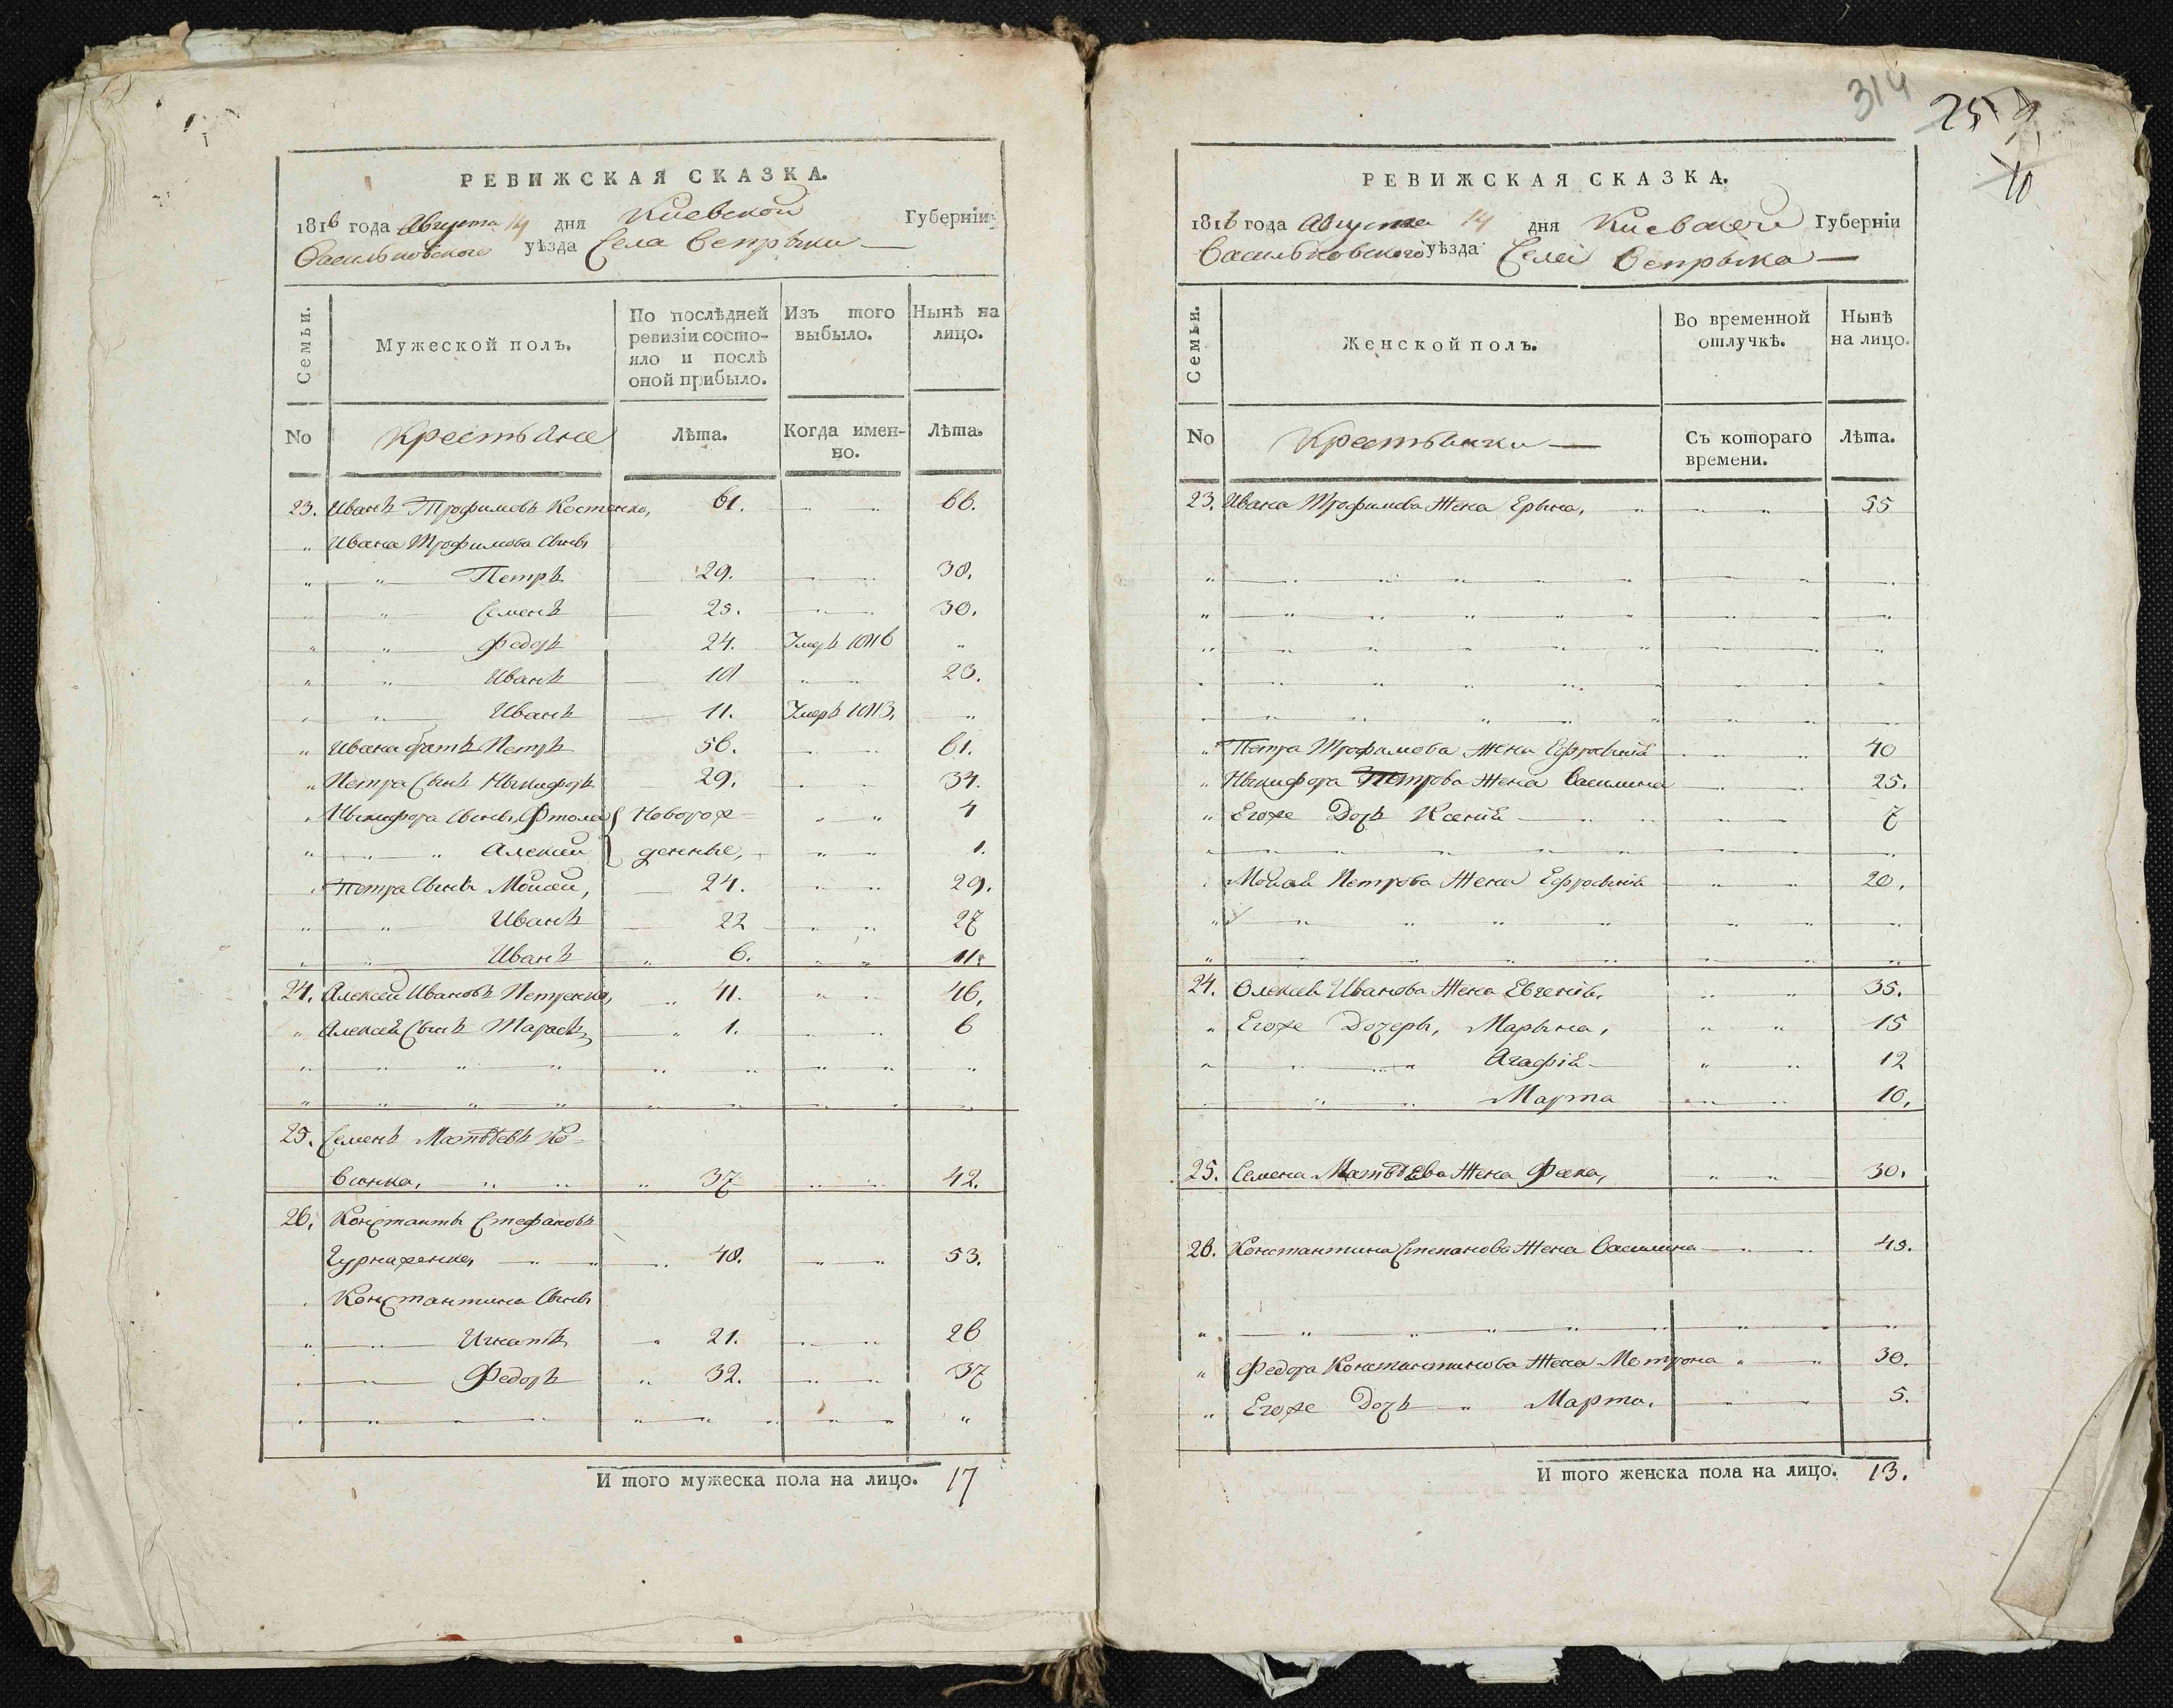 314
25
10
РЕВИЖСКАЯ СКАЗКА.
1816 года Августа 14 дня Киевской Губерніи
Васильковского уѣзда Села Вепрыка —
Семьи. Мужеской полъ. По послѣдней ревизіи состояло и послѣ оной прибыло. Изъ того выбыло. Нынѣ на лицо.
No Крестьяне Лѣта. Когда именно. Лѣта.
23. Иванъ Трофимовъ Костенко, 61. " " 66.
" Ивана Трофимова Сыны
" " Петръ 29. " " 38.
" " Семенъ 25. " " 30.
" " Федоръ 24. Умеръ 1816 "
" " Иванъ 18 " " 23.
" " Иванъ 11. Умеръ 1813, "
" Ивана братъ Петръ 56. " " 61.
" Петра Сынъ Никифоръ 29. " " 34.
" Никифора Сыны, Новорож- " " 4
" " " Алексей денные, " " 1.
" Петра Сыны Мойсей, 24. " " 29.
" " Иванъ 22 " " 27
" " Иванъ " 6. " " 11.
24. Алексей Ивановъ Петренко, " 41. " " 46.
" Алексея Сынъ Тарасъ " 1. " " 6
25. Семенъ Матвѣевъ Ко-
" " " 37 " " 42.
26. Константъ Стефановъ
" " " 48. " " 53.
" Константина Сыны
" " Игнатъ " 21. " " 26
" " Федоръ " 32. " " 37
И того мужеска пола на лицо. 17
РЕВИЖСКАЯ СКАЗКА.
1816 года Августа 14 дня Киевской Губерніи
Васильковского уѣзда Села Вепрыка —
Семьи. Женской полъ. Во временной отлучкѣ. Нынѣ на лицо.
No Крестьянки — Съ котораго времени. Лѣта.
23. Ивана Трофимова Жена Ерына, " " 55
" Петра Трофимова Жена Ефросинія " " 40
" Никифора Петрова Жена Василина " " 25.
" Егоже Дочь Ксенія " " 7
" Мойсея Петрова Жена Ефросинія " " 20.
24. Олексея Иванова Жена Евгенія, " " 35.
" Егоже Дочеры, Марына, " " 15
" " " Агафія " " 12
" " " Марта " " 10.
25. Семена Матвѣева Жена Фекла, " " 30.
26. Константина Степанова Жена Василина " " 45.
" Федора Константинова Жена Мотрона " " 30.
" Егоже Дочь " Марта. " " 5.
И того женска пола на лицо. 13.